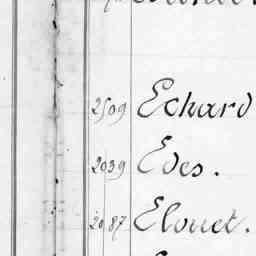 2509 Echard
2039 Edes.
2087 Elouet.